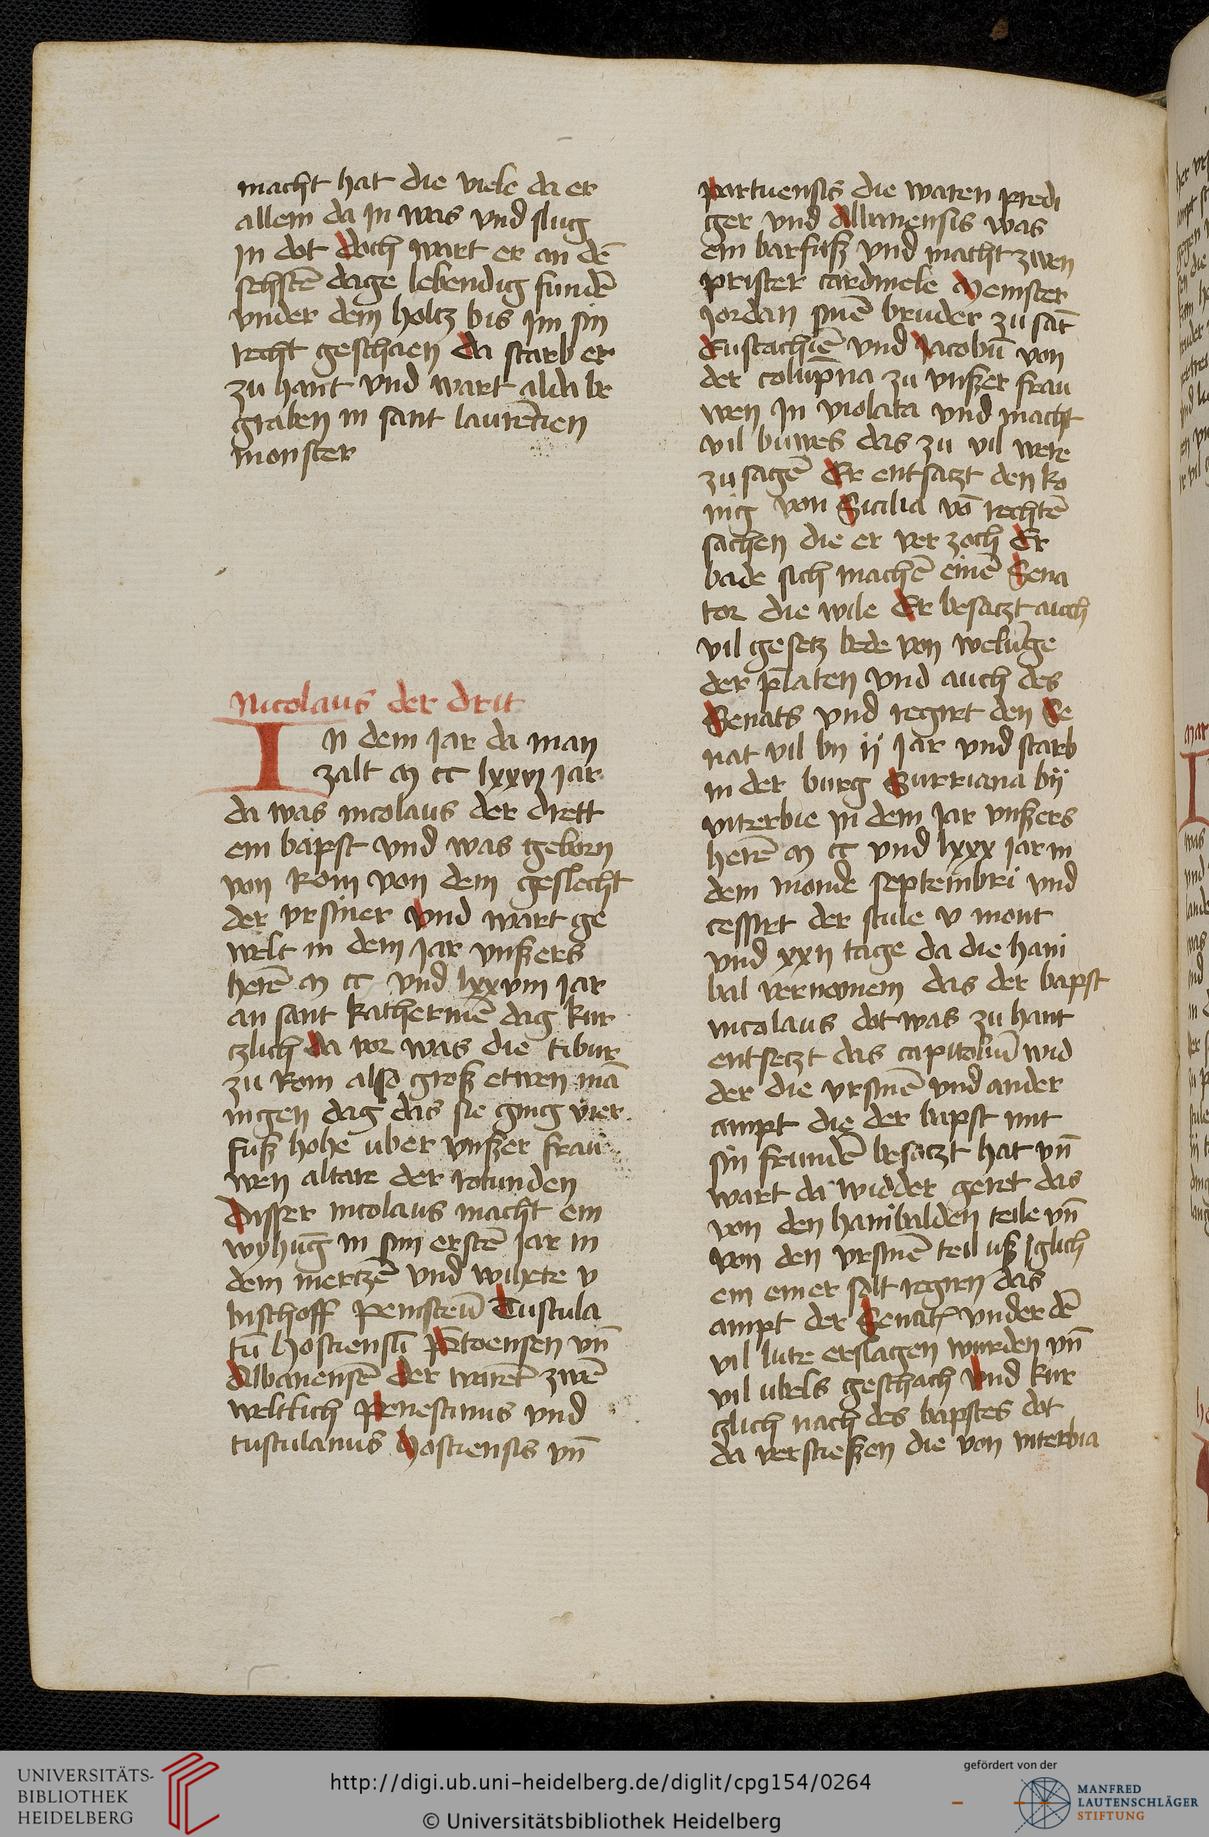 macht hat die viele da er
allein da in was vnd slug
in dot doch wart er an dē
sehstē dage lebendig fundē
vnder dem holtz bis im sin
recht geschaen da starb er
zu hant vnd wart alda be
graben in sant laurēcien
monster
Nicolaus der drit
In dem jar da man
zalt M CC lxxvij jar
da was nicolaus der drett
ein bapst vnd was geborn
von Rom von dem geslecht
der vrsiner vnd wart ge
welt in dem jar vnßers
herē M CC vnd lxxviij jar
an sant katherinē dag kur
czlich da vor was die tibur
zu Rom also groß etwen mā
nigen dag das sie ging vier
fuß hohe uber vnßer frau
wen altare der rotunden
Disser nicolaus macht ein
wyhūg in sim erstē jar in
dem mertzē vnd wihete v
bischoff Tuscula
tū hostiensū vn̄
Albanensē der warē zwē
weltlich prenestinus vnd
tusculanus hostiensis vn̄
portuensis die waren predi
ger vnd Albanensis was
ein barfuß vnd macht zwen
prister cardinele Meinster
Jordan sinē bruder zu sāt
Eustachiē vnd Jacobū von
der colūpna zu vnßer frau
wen in violata vnd macht
vil buwes das zu vil were
zu sagē Er entsaczt den ko
nig von Sicilia vō rechtē
sachen die er ver zoch Er
bade sich machē einē Sena
tor die wile Er besaczt auch
vil gesetz bede von welūge
der p̄laten vnd auch des
Senats vnd regirt den Se
nat vil bn ij jar vnd starb
in der burg Surriana bij
viterbie in dem jar vnßers
herē M CC vnd lxxx jar in
dem monde septembri vnd
cessirt der stule v mont
vnd xxij tage da die hani
bal vernomem das der bapst
nicolaus dot was zu hant
entsetzt das capitoliū wid
der die vrsinē vnd ander
ampt die der bapst mit
sin frundē besaczt hat vn̄
wart da widder geret das
von den hanibalden teile vn̄
von den vrsinē teil uß iglich
ein einer solt regirn das
ampt der Senat vnder dē
vil lute erslagen wurden vn̄
vil ubels geschach vnd kur
czlich nach des bapstes dot
da verstießen die von viterbia
UNIVERSITÄTS-
BIBLIOTHEK
HEIDELBERG
http://digi.ub.uni-heidelberg.de/diglit/cpg154/0264
© Universitätsbibliothek Heidelberg
gefördert von der
MANFRED
LAUTENSCHLÄGER
STIFTUNG